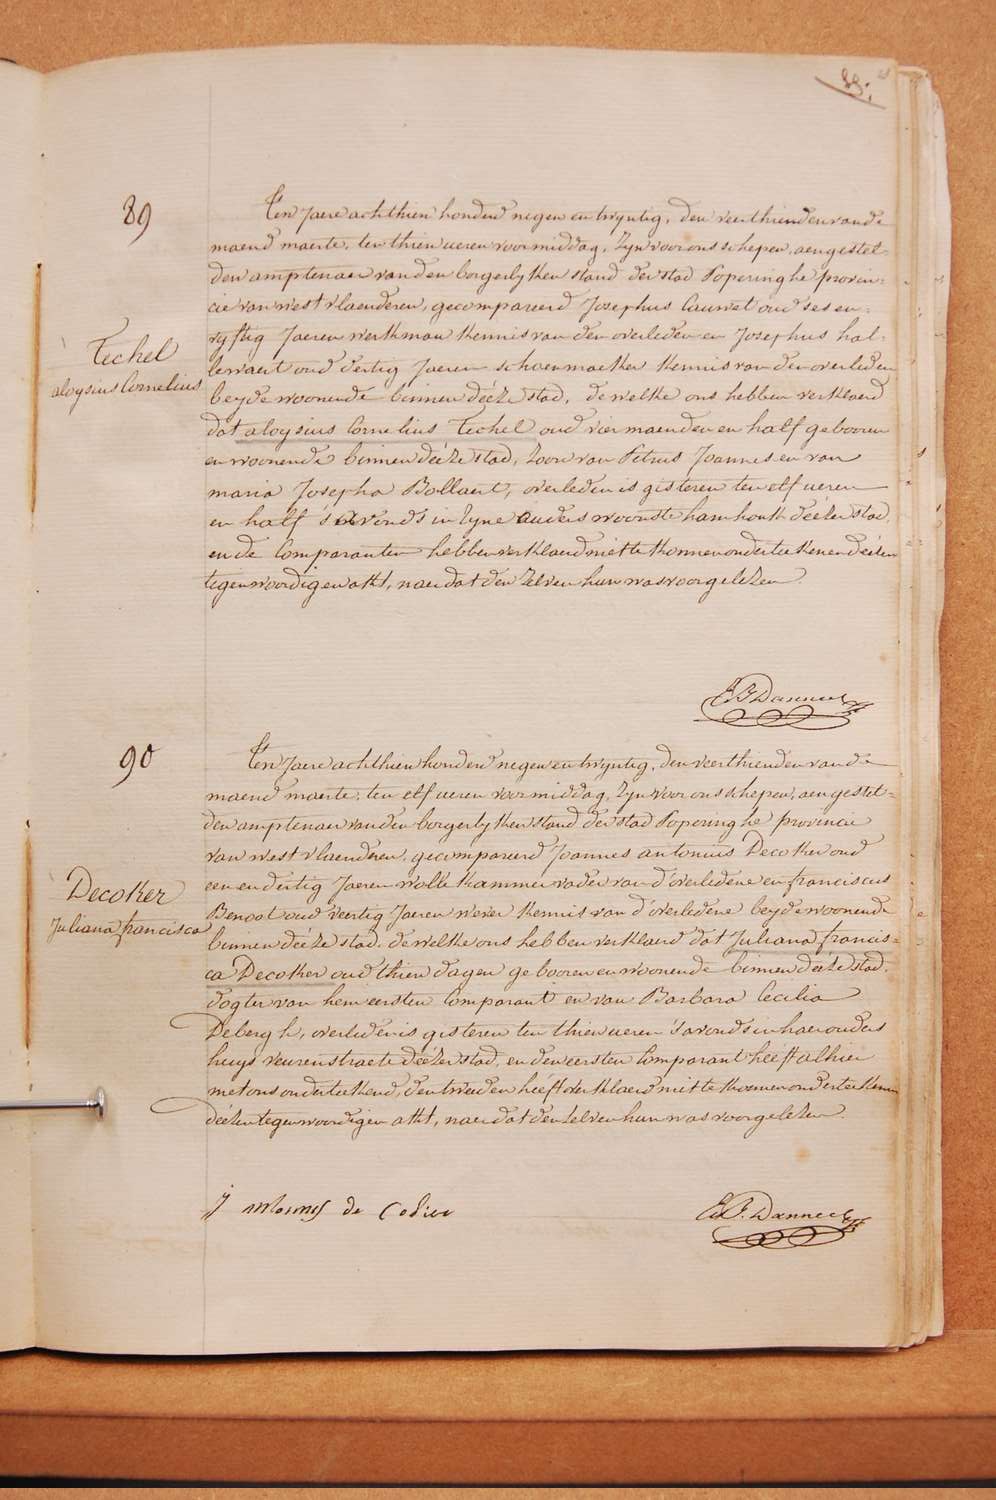 33:
89
Techel
aloysius Cornelius
Ten Jaere achthien honderd negen en twyntig, den veerthienden van de
maend maerte, ten thien ueren voormiddag, Zyn voor ons schepen, aengestel-
den amptenaer van den borgerlyken stand der stad Poperinghe provin-
cie van west vlaenderen, gecompareerd Josephus Cauwel oud ses en
vyftig Jaeren werkman kennis van den overleden en Josephus hal-
lewaert oud dertig Jaeren schoenmaeker kennis van den overleden
beyde woonende binnen dééze stad, de welke ons hebben verklaerd
dat aloysius Cornelius Techel oud vier maenden en half gebooren
en woonende binnen dééze stad, Zoon van Petrus Joannes en van
maria Josepha Bollaert, overleden is gisteren ten elf ueren
en half 's avonds in Zyne ouders woonste hamhouk déézer stad,
en de Comparanten hebben verklaerd niet te konnen onderteekenen déézen
tegenwoordigen akt, naer dat den Zelven hun was voorgelezen
90
Decoker
Juliana francisca
Ten Jaere achthien honderd negen en twyntig, den veerthienden van de
maend maerte, ten elf ueren voormiddag, Zyn voor ons schepen, aengestel-
den amptenaer van den borgerlyken stand der stad Poperinghe provincie
van west vlaenderen, gecompareerd Joannes antonius Decoker oud
een en dertig Jaeren wolle kammer vader van d'overledene en franciscus
Benoot oud veertig Jaeren wever kennis van d'overledene beyde woonende
binnen dééze stad, de welke ons hebben verklaerd dat Juliana francis-
ca Decoker oud thien dagen gebooren en woonende binnen dééze stad,
dogter van hem eersten Comparant en van Barbara Cecilia
Debergh, overleden is gisteren ten thien ueren 's avonds in haer ouders
huys veurenstraete déézer stad, en den eersten Comparant héeft alhier
met ons onderteekend, den tweeden héeft verklaerd niet te konnen onderteekenen
déézen tegenwoordigen akt, naer dat den zelven hun was voorgelezen
J de